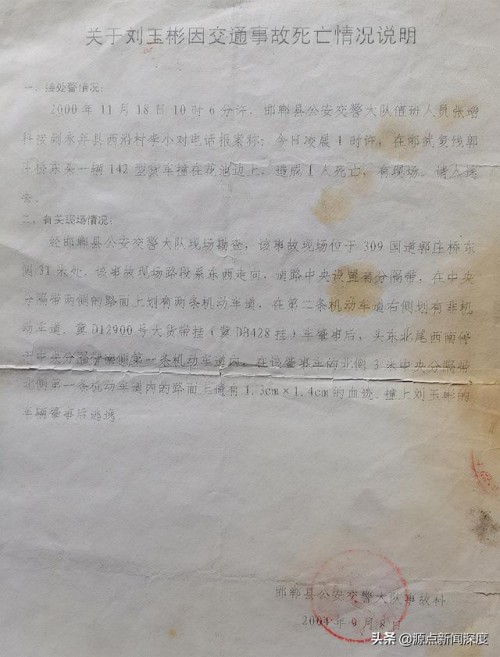 关于刘玉彬因交通事故死亡情况说明
一、接处警情况：
2000年11月18日10时6分许，邯郸县公安交警大队值班人员张增
科接到永年县西沿村李小对电话报案称：今日凌晨1时许，在邯武复线郭
庄桥东头一辆142型货车撞在护池边上，造成1人死亡，有现场，请人接
二、有关现场情况：
经邯郸县公安交警大队现场勘查，该事故现场位于309国道郭庄桥东
侧31米处。该事故现场路段系东西走向，道路中央设置有分隔带，在中央
分隔带两侧的路面上划有两条机动车道，在第二条机动车道右侧划有非机
动车道。冀D12900号大货带挂（冀DB428挂）车肇事后，头东北尾西南停
于中央分隔带西侧第一条机动车道内，在该肇事车的北侧3米中央分隔带
北侧第一条机动车道内的路面上遗有1.3cm×1.4cm的血迹。撞上刘玉彬的
车辆肇事后逃逸
邯郸县公安交警大队事故科
2001年9月8日
头条 @源点新闻深度